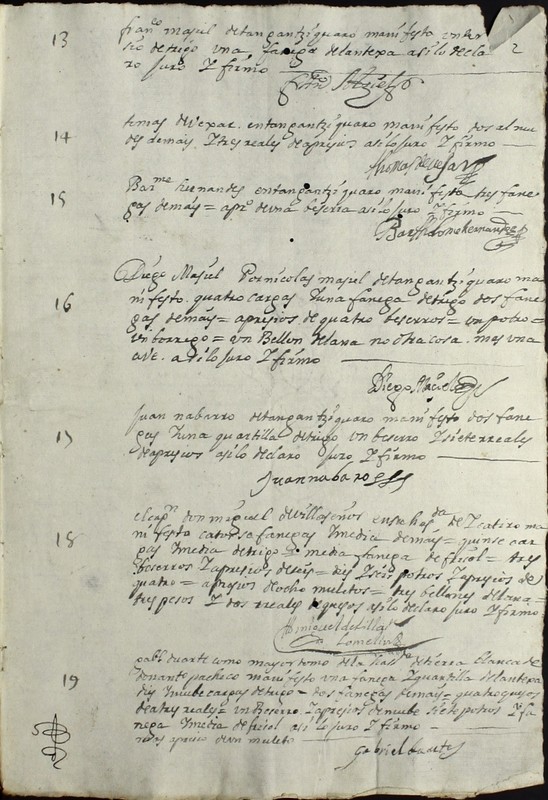 2
13 fran.co masiel detangantziquaro manifesto un ter
sio de trigo una fanega de lantexa asi lo decla
ro juro Y firmo
14 tomas de vexar. en tangantziquaro manifesto dos almu
des demais. Y tres reales de apresios asi lo juro Y firmo
thomas de vejar
15 Bar.me hernandes en tangantziquaro manifesto tres fane
gas demais = apr.o de una beseria asi lo juro Y firmo
Bartholome hernandes
16 Diego Masiel Por nicolas masiel detangantziquaro ma
nifesto. quatro cargas Y una fanega de trigo dos fane
gas demais = apresios de quatro beserros = un potro =
un borrego = un Bellon de lana no otra cosa. mas una
ave. asi lo juro Y firmo
Diego Masiel
17 Juan nabarro detangantziquaro manifesto dos fane
gas Y una quartilla de trigo un beserro Y siete rreales
de apresios asi lo declaro juro Y firmo
Juan nabaro
18 el cap.n don miguel de villaseñor en su has.da de ma
nifesto catorse fanegas Y media demais = quinse car
gas Y media de trigo media fanega de frisol = tres
beserros Y apresios de seis = dies Y seis potros Y apresios de
quatro = apresios de ocho muletos = tres bellones de lana =
tres pesos Y dos rreales de quesos asi lo declaro juro Y firmo
miguel de Villas.r
Lomelin
19 gab.l duarte como mayordomo de la has.da de tierra blanca de
donante pacheco manifesto una fanega Y quartilla de lantexa
dies Y nuebe cargas de trigo = dos fanegas demais = quatro quesos
de a tres reales = un Beserro Y apresios de nuebe siete potros Y fa
nega Y media de frisol asi lo juro Y firmo
mas apresio de un muleto
Gabriel duarte